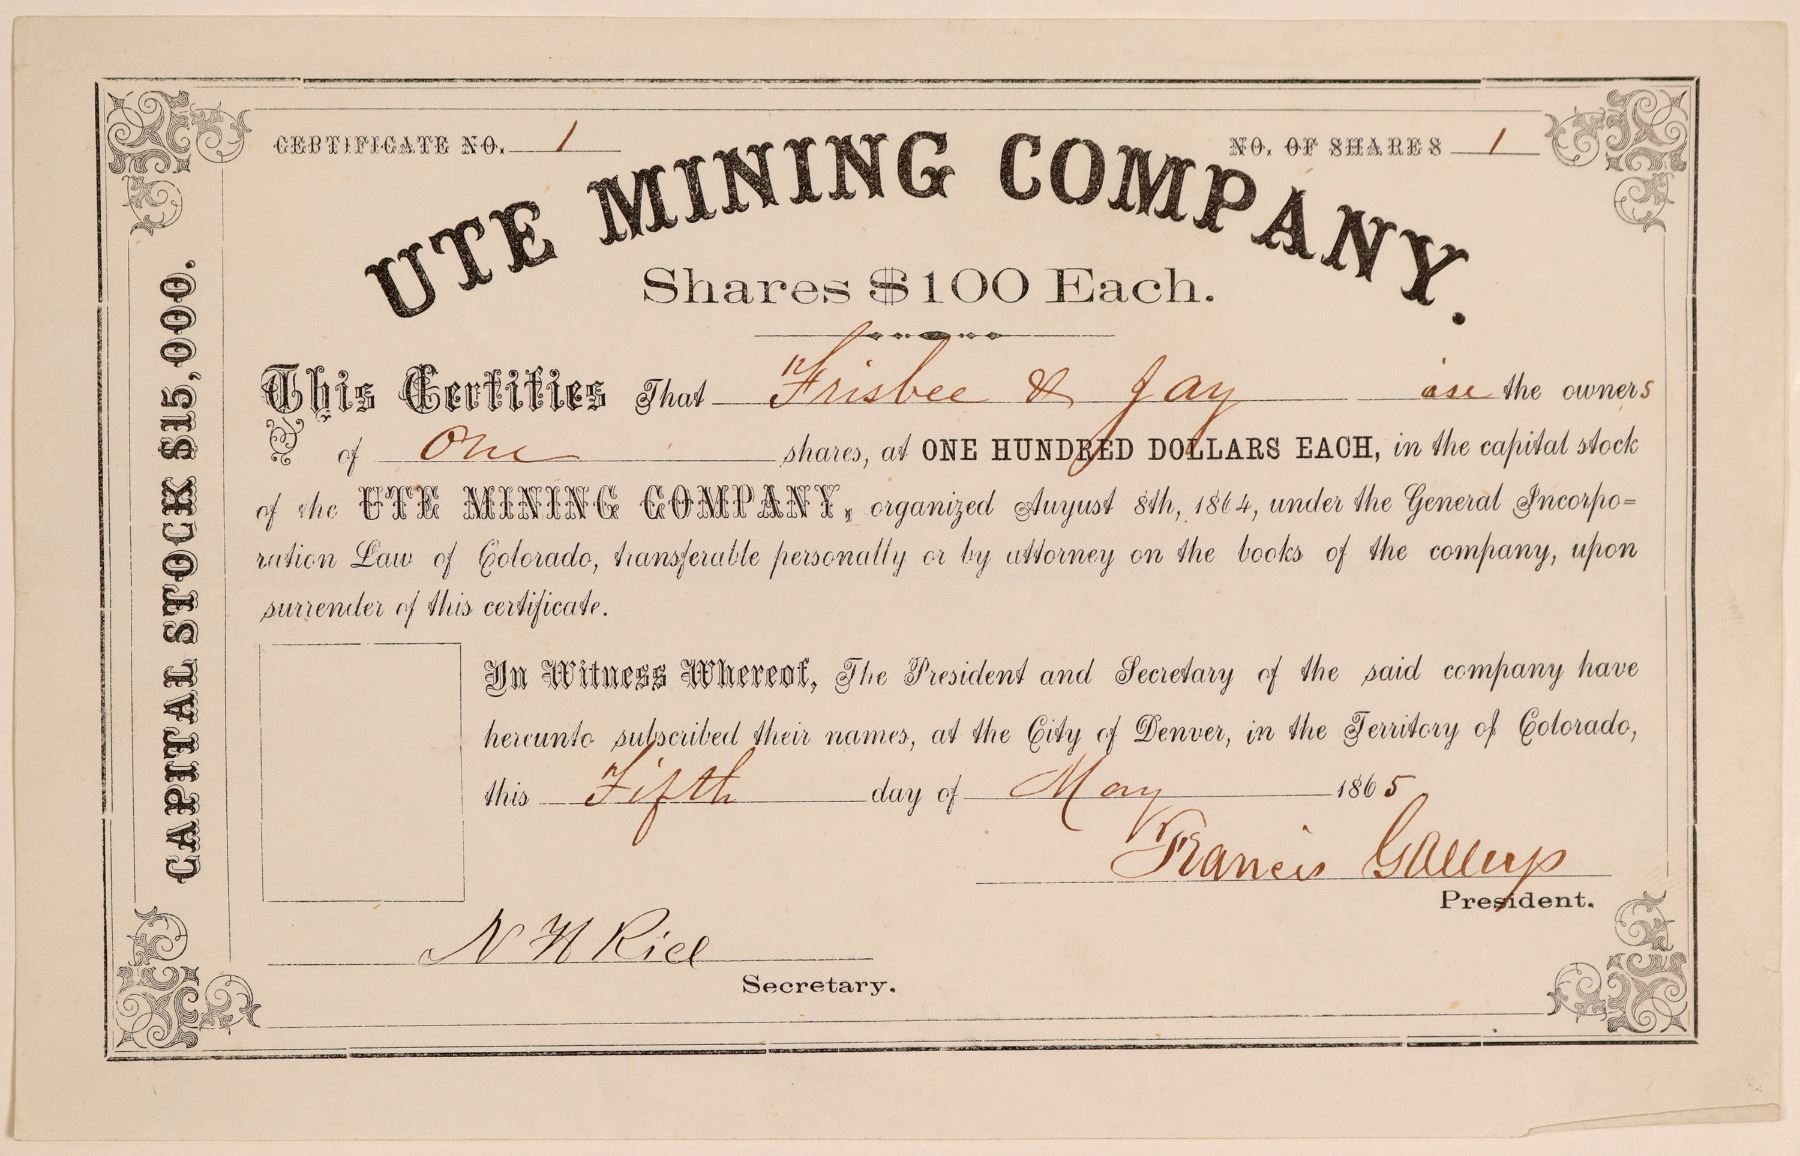 CERTIFICATE NO. 1
NO. OF SHARES 1
UTE MINING COMPANY.
Shares $100 Each.
CAPITAL STOCK $15,000.
This Certifies That Frisbee & Jay are the owners
of One shares, at ONE HUNDRED DOLLARS EACH, in the capital stock
of the UTE MINING COMPANY, organized August 8th, 1864, under the General Incorpo=
ration Law of Colorado, transferable personally or by attorney on the books of the company, upon
surrender of this certificate.
In Witness Whereof, The President and Secretary of the said company have
hereunto subscribed their names, at the City of Denver, in the Territory of Colorado,
this Fifth day of May 1865
Francis Gallup
President.
N H Rice
Secretary.